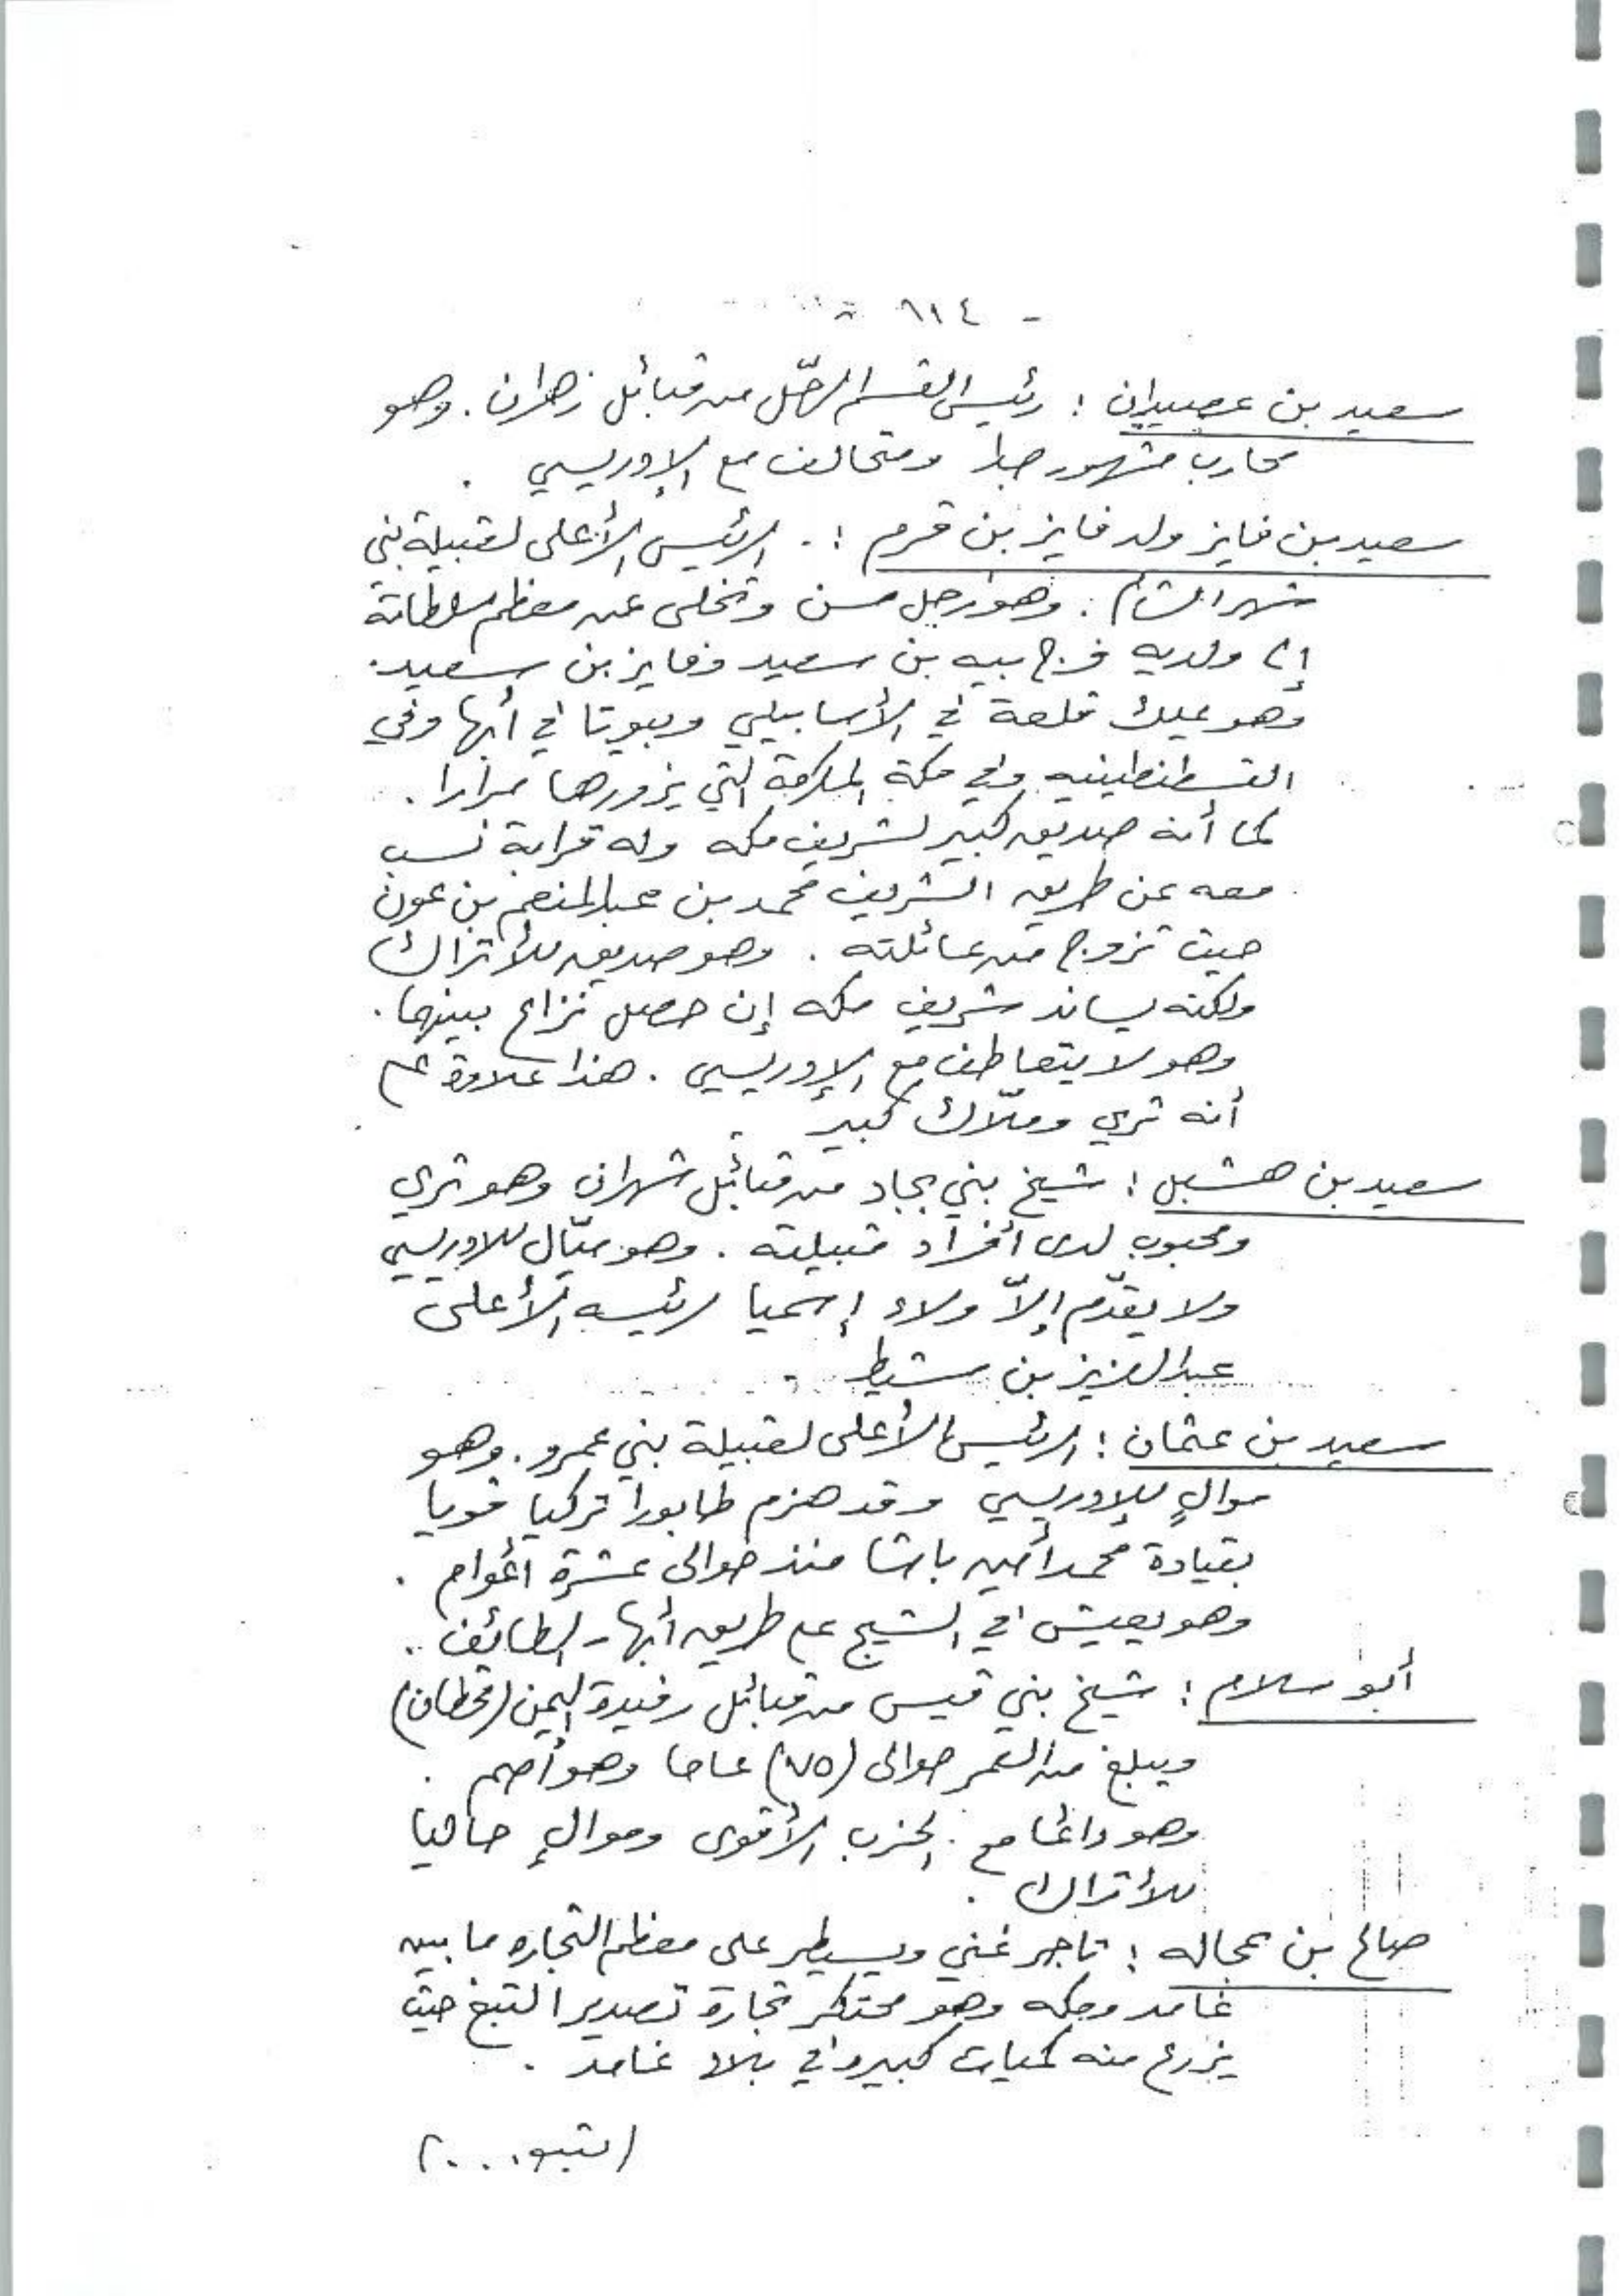 - ٦١٤ -
سعيد بن عصيدان : رئيس القسم الرحّل من قبائل زهران . وهو
محارب مشهور جدا ومتحالف مع الإدريسي .
سعيد بن فايز ولد فايز بن قرم : . الرئيس الأعلى لقبيلة بني
شهر الشام . وهو رجل مسن وتخلى عن معظم سلطاته
إلى ولديه فرج بيه بن سعيد وفايز بن سعيد .
وهو يملك قلعة في الأسابيلي وبيوتا في أبها وفي
القسطنطينيه وفي مكة المكرمة التي يزورها مرارا .
كما أنه صديق كبير لشريف مكه وله قرابة نسب
معه عن طريق الشريف محمد بن عبدالمنعم بن عون
حيث تزوج من عائلته . وهو صديق للأتراك
ولكنه يساند شريف مكه إن حصل نزاع بينهما .
وهو لا يتعاطف مع الإدريسي . هذا علاوة على
أنه ثري وملّاك كبير .
سعيد بن هشبل : شيخ بني بجاد من قبائل شهران وهو ثري
ومحبوب لدى أفراد قبيلته . وهو ميّال للادريسي
ولا يقدّم إلاّ ولاء إسميا لرئيسه الأعلى
عبدالعزيز بن مشيط .
سعيد بن عثمان : الرئيس الأعلى لقبيلة بني عمرو . وهو
موالٍ للإدريسي وقد هزم طابورا تركيا قويا
بقيادة محمد أمين باشا منذ حوالى عشرة أعوام .
وهو يعيش في الشيج على طريق أبها - الطائف .
أبو سلام : شيخ بني قيس من قبائل رفيدة اليمن (قحطان)
ويبلغ من العمر حوالى (٧٥) عاما وهو أصم .
وهو دائما مع الحزب الأقوى وموالٍ حاليا
للأتراك .
صالح بن عجاله : تاجر غني ويسيطر على معظم التجاره ما بين
غامد ومكه وهو محتكر تجارة تصدير التبغ حيث
يزرع منه كميات كبيره في بلاد غامد .
(يتبع . . . )